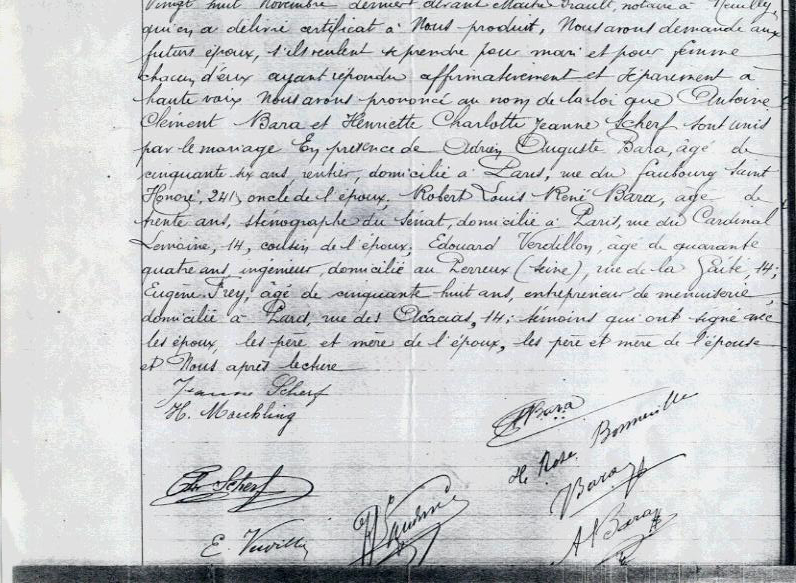 Vingt huit Novembre dernier devant Maître notaire à Neuilly,
qui en a délivré certificat à Nous produit, Nous avons demandé aux
futurs époux, s'ils veulent se prendre pour mari et pour femme
chacun d'eux ayant répondu affirmativement et séparément à
haute voix Nous avons prononcé au nom de la loi que Antoine
Clément Bara et Henriette Charlotte Jeanne Scherf sont unis
par le mariage En présence de Adrien Auguste Bara, âgé de
cinquante six ans, rentier, domicilié à Paris, rue du faubourg Saint
Honoré, 241, oncle de l'époux, Robert Louis René Bara, âgé de
trente ans, sténographe du Sénat, domicilié à Paris, rue du Cardinal
Lemoine, 14, cousin de l'époux; Edouard Verdillon, âgé de quarante
quatre ans, ingénieur, domicilié au Perreux (Seine), rue de la Gaîté, 14;
Eugène Frey, âgé de cinquante huit ans, entrepreneur de menuiserie,
domicilié à Paris, rue des Acacias, 14; témoins qui ont signé avec
les époux, les père et mère de l'époux, les père et mère de l'épouse
et Nous après lecture
Jeanne Scherf
ABara
H. Moeckling
H. Rose Bonneville
Scherf
Bara
E.
ABara